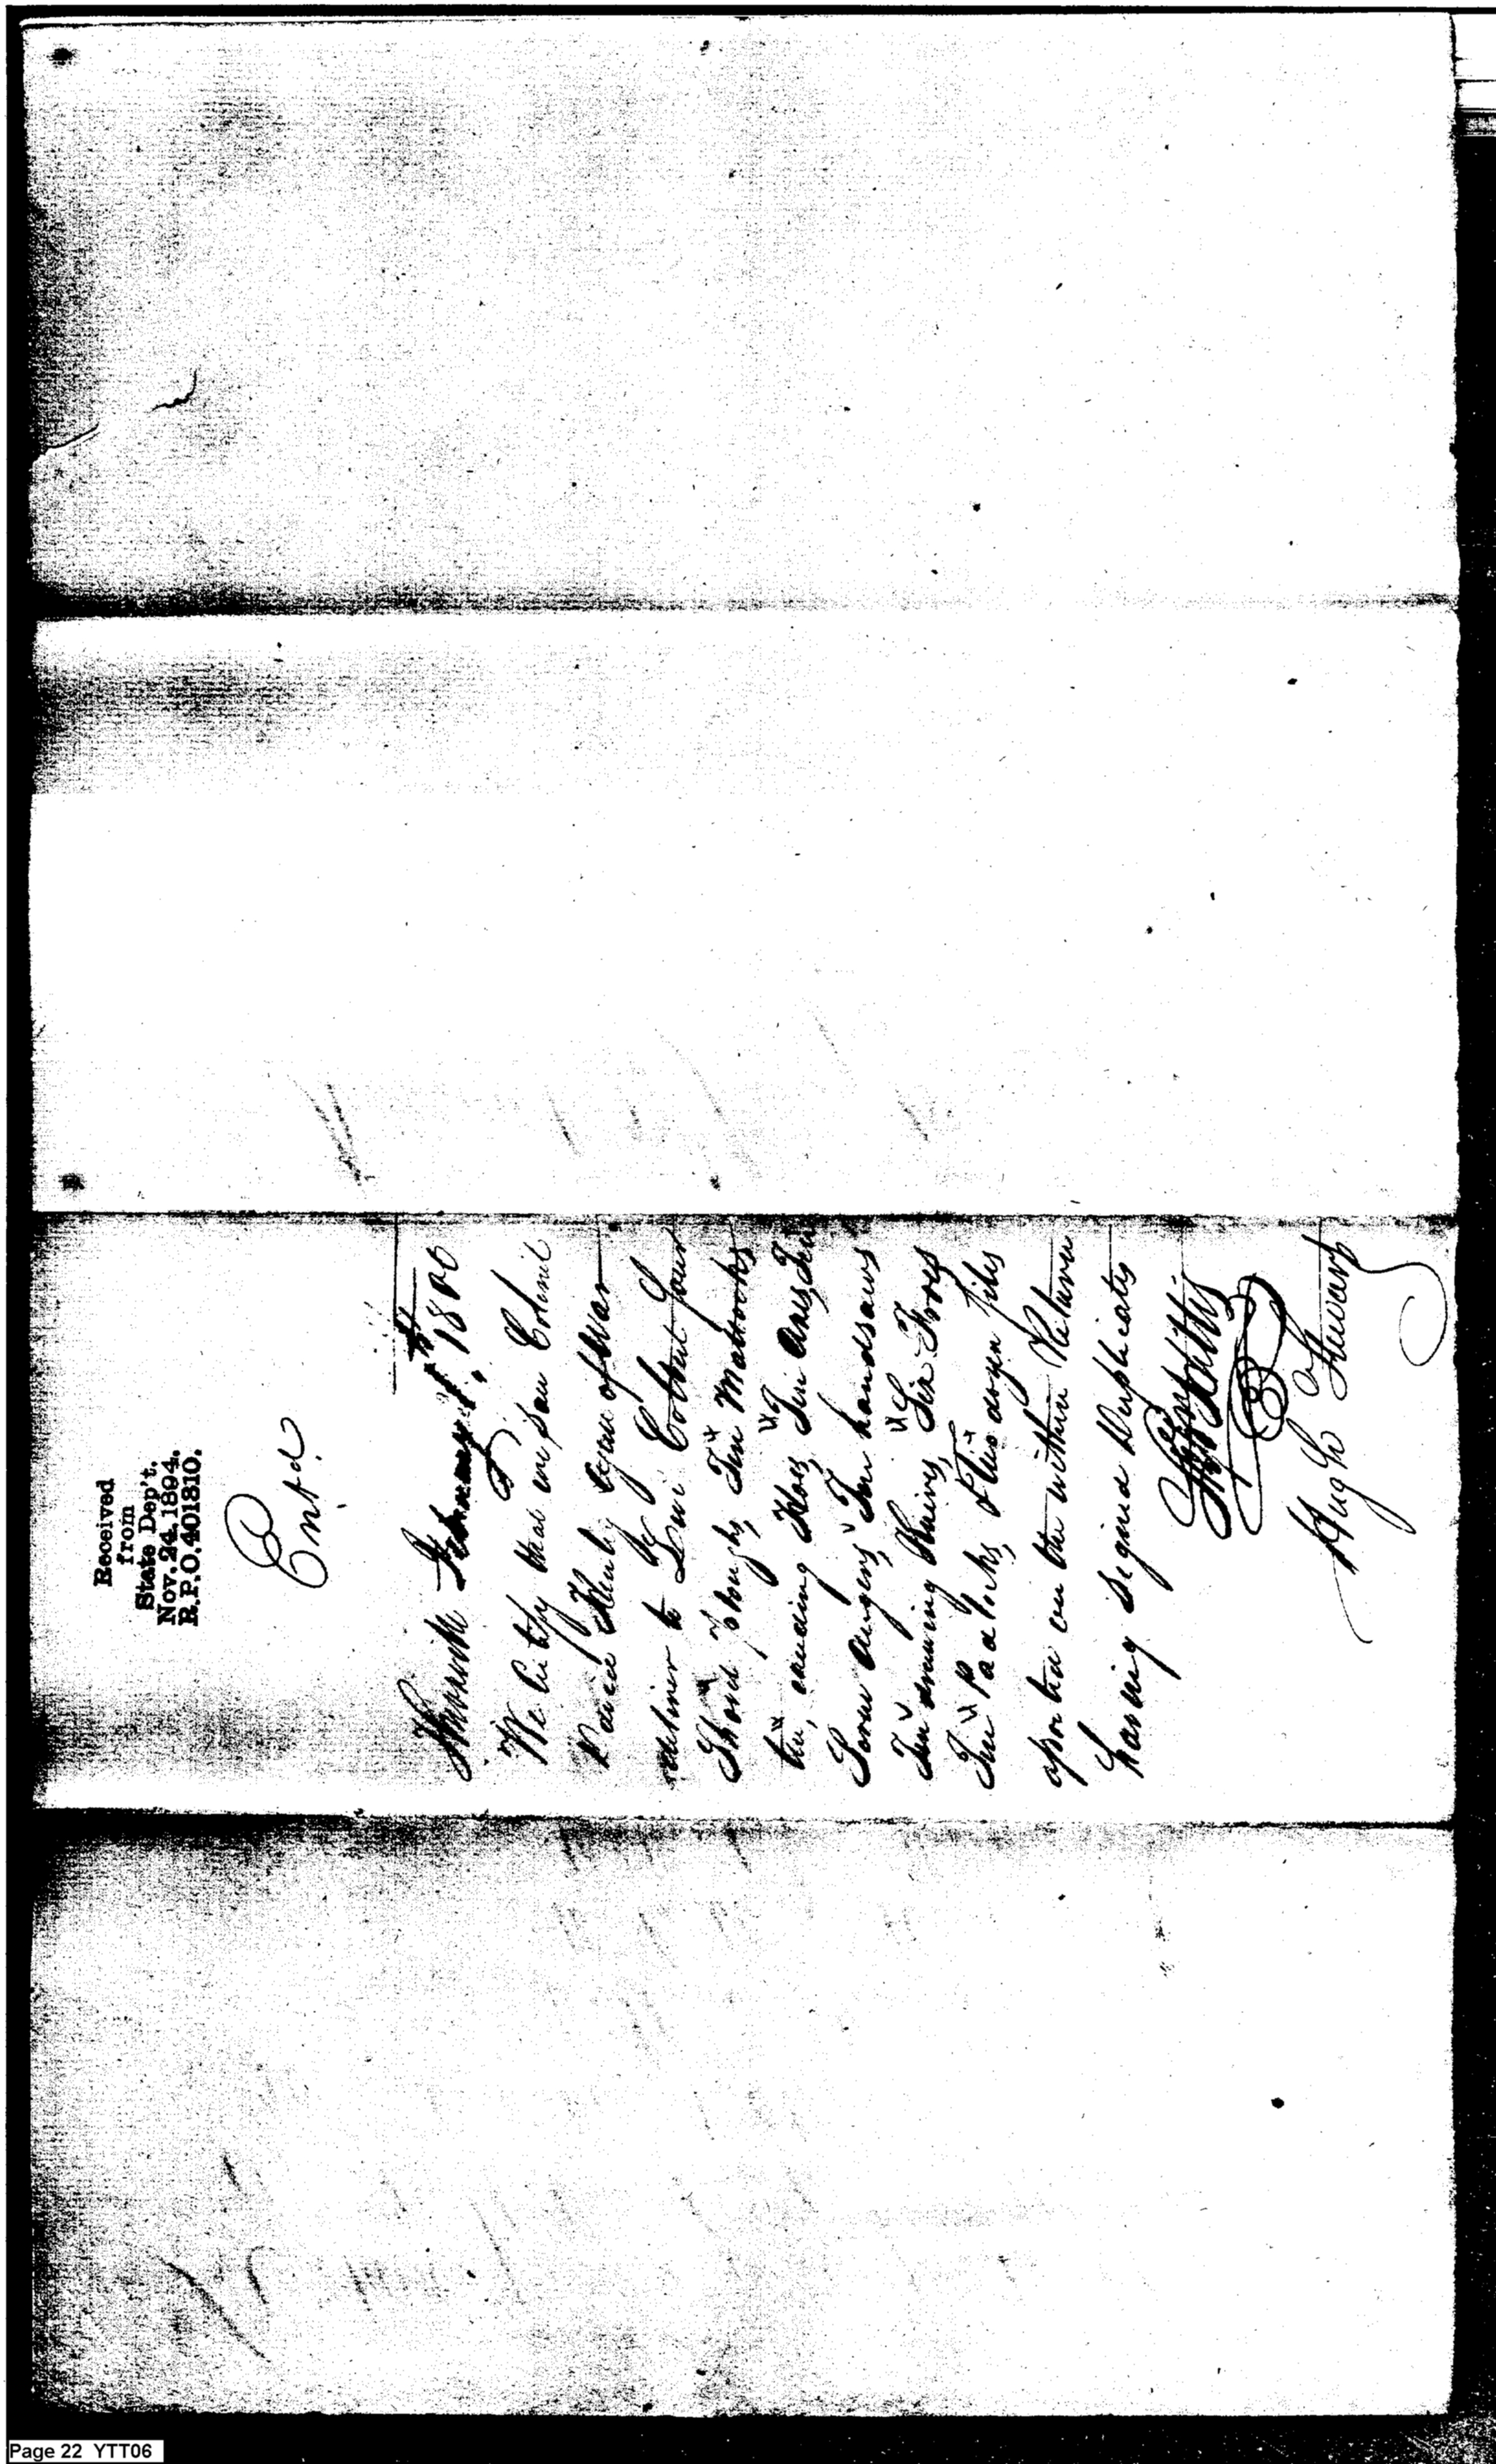 Received
from
State Dep't.
Nov. 24, 1894.
R.P.O. 401810.
Entd.
February 1800
We Certify that we saw Colonel
David Henly agent of War
deliver to Levi Colbert four
Shovel ploughs, Ten Mattocks
ten, weeding Hoes, Ten axes, Ten
augers, Ten handsaws
Ten drawing Knives, Six Froes
Ten Padlocks, & two dozen files
on the within Return
having signed Duplicates
Hugh Stewart
Page 22 YTT06